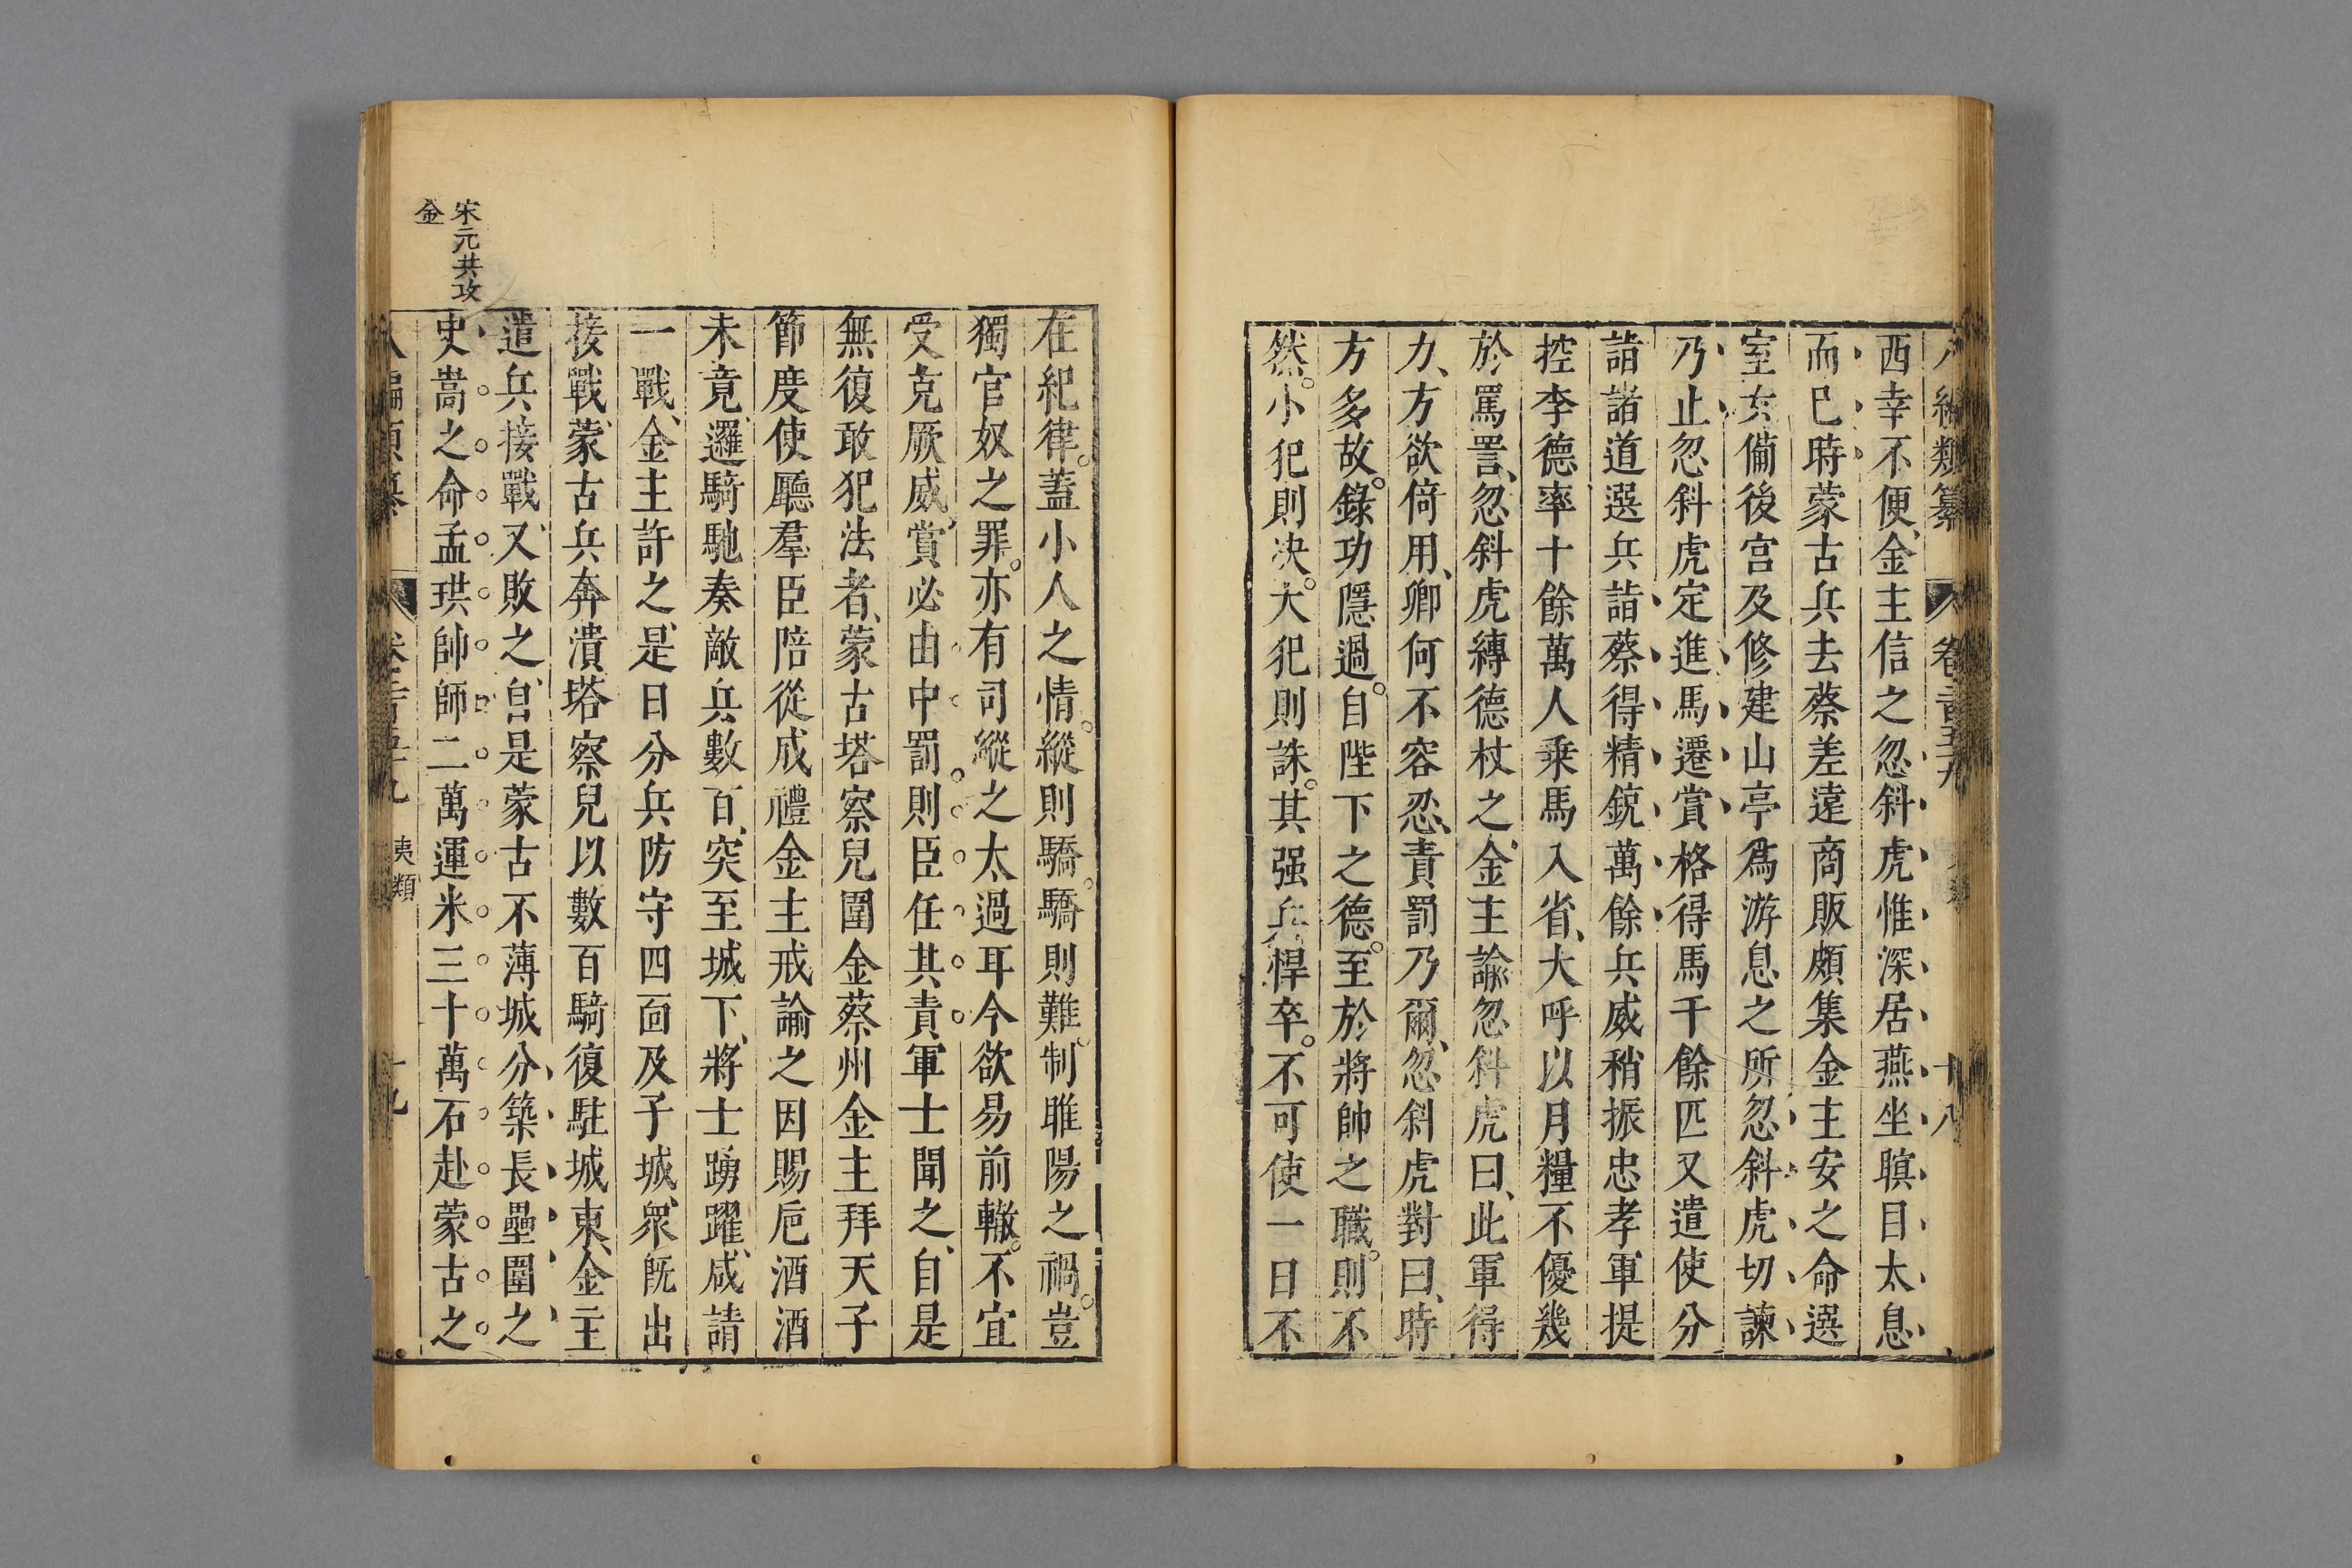 八編類纂 卷二百五十九 十八
西幸不便金主信之忽斜虎惟深居燕坐瞋目太息
而已時蒙古兵去蔡差遠商販頗集金主安之命選
室女備後宮及修建山亭爲游息之所忽斜虎切諫
乃止忽斜虎定進馬遷賞格得馬千餘匹又遣使分
詣諸道選兵詣蔡得精銳萬餘兵威稍振忠孝軍提
控李德率十餘萬人乘馬入省大呼以月糧不優幾
於罵詈忽斜虎縛德杖之金主諭忽斜虎曰此軍得
力方欲倚用卿何不容忍責罰乃爾忽斜虎對曰時
方多故錄功隱過自陛下之德至於將帥之職則不
然小犯則决大犯則誅其强兵悍卒不可使一日不
在紀律蓋小人之情縱則驕驕則難制睢陽之禍豈
獨官奴之罪亦有司縱之太過耳今欲易前轍不宜
受克厥威賞必由中罰則臣任其責軍士聞之自是
無復敢犯法者蒙古塔察兒圍金蔡州金主拜天子
節度使廳羣臣陪從成禮金主戒諭之因賜巵酒酒
未竟邏騎馳奏敵兵數百突至城下將士踴躍咸請
一戰金主許之是日分兵防守四面及子城衆旣出
接戰蒙古兵奔潰塔察兒以數百騎復駐城東金主
遣兵接戰又敗之自是蒙古不薄城分築長壘圍之
宋元共攻
金
史嵩之命孟珙帥師二萬運米三十萬石赴蒙古之
八編類纂 卷二百五十九 夷類 十九